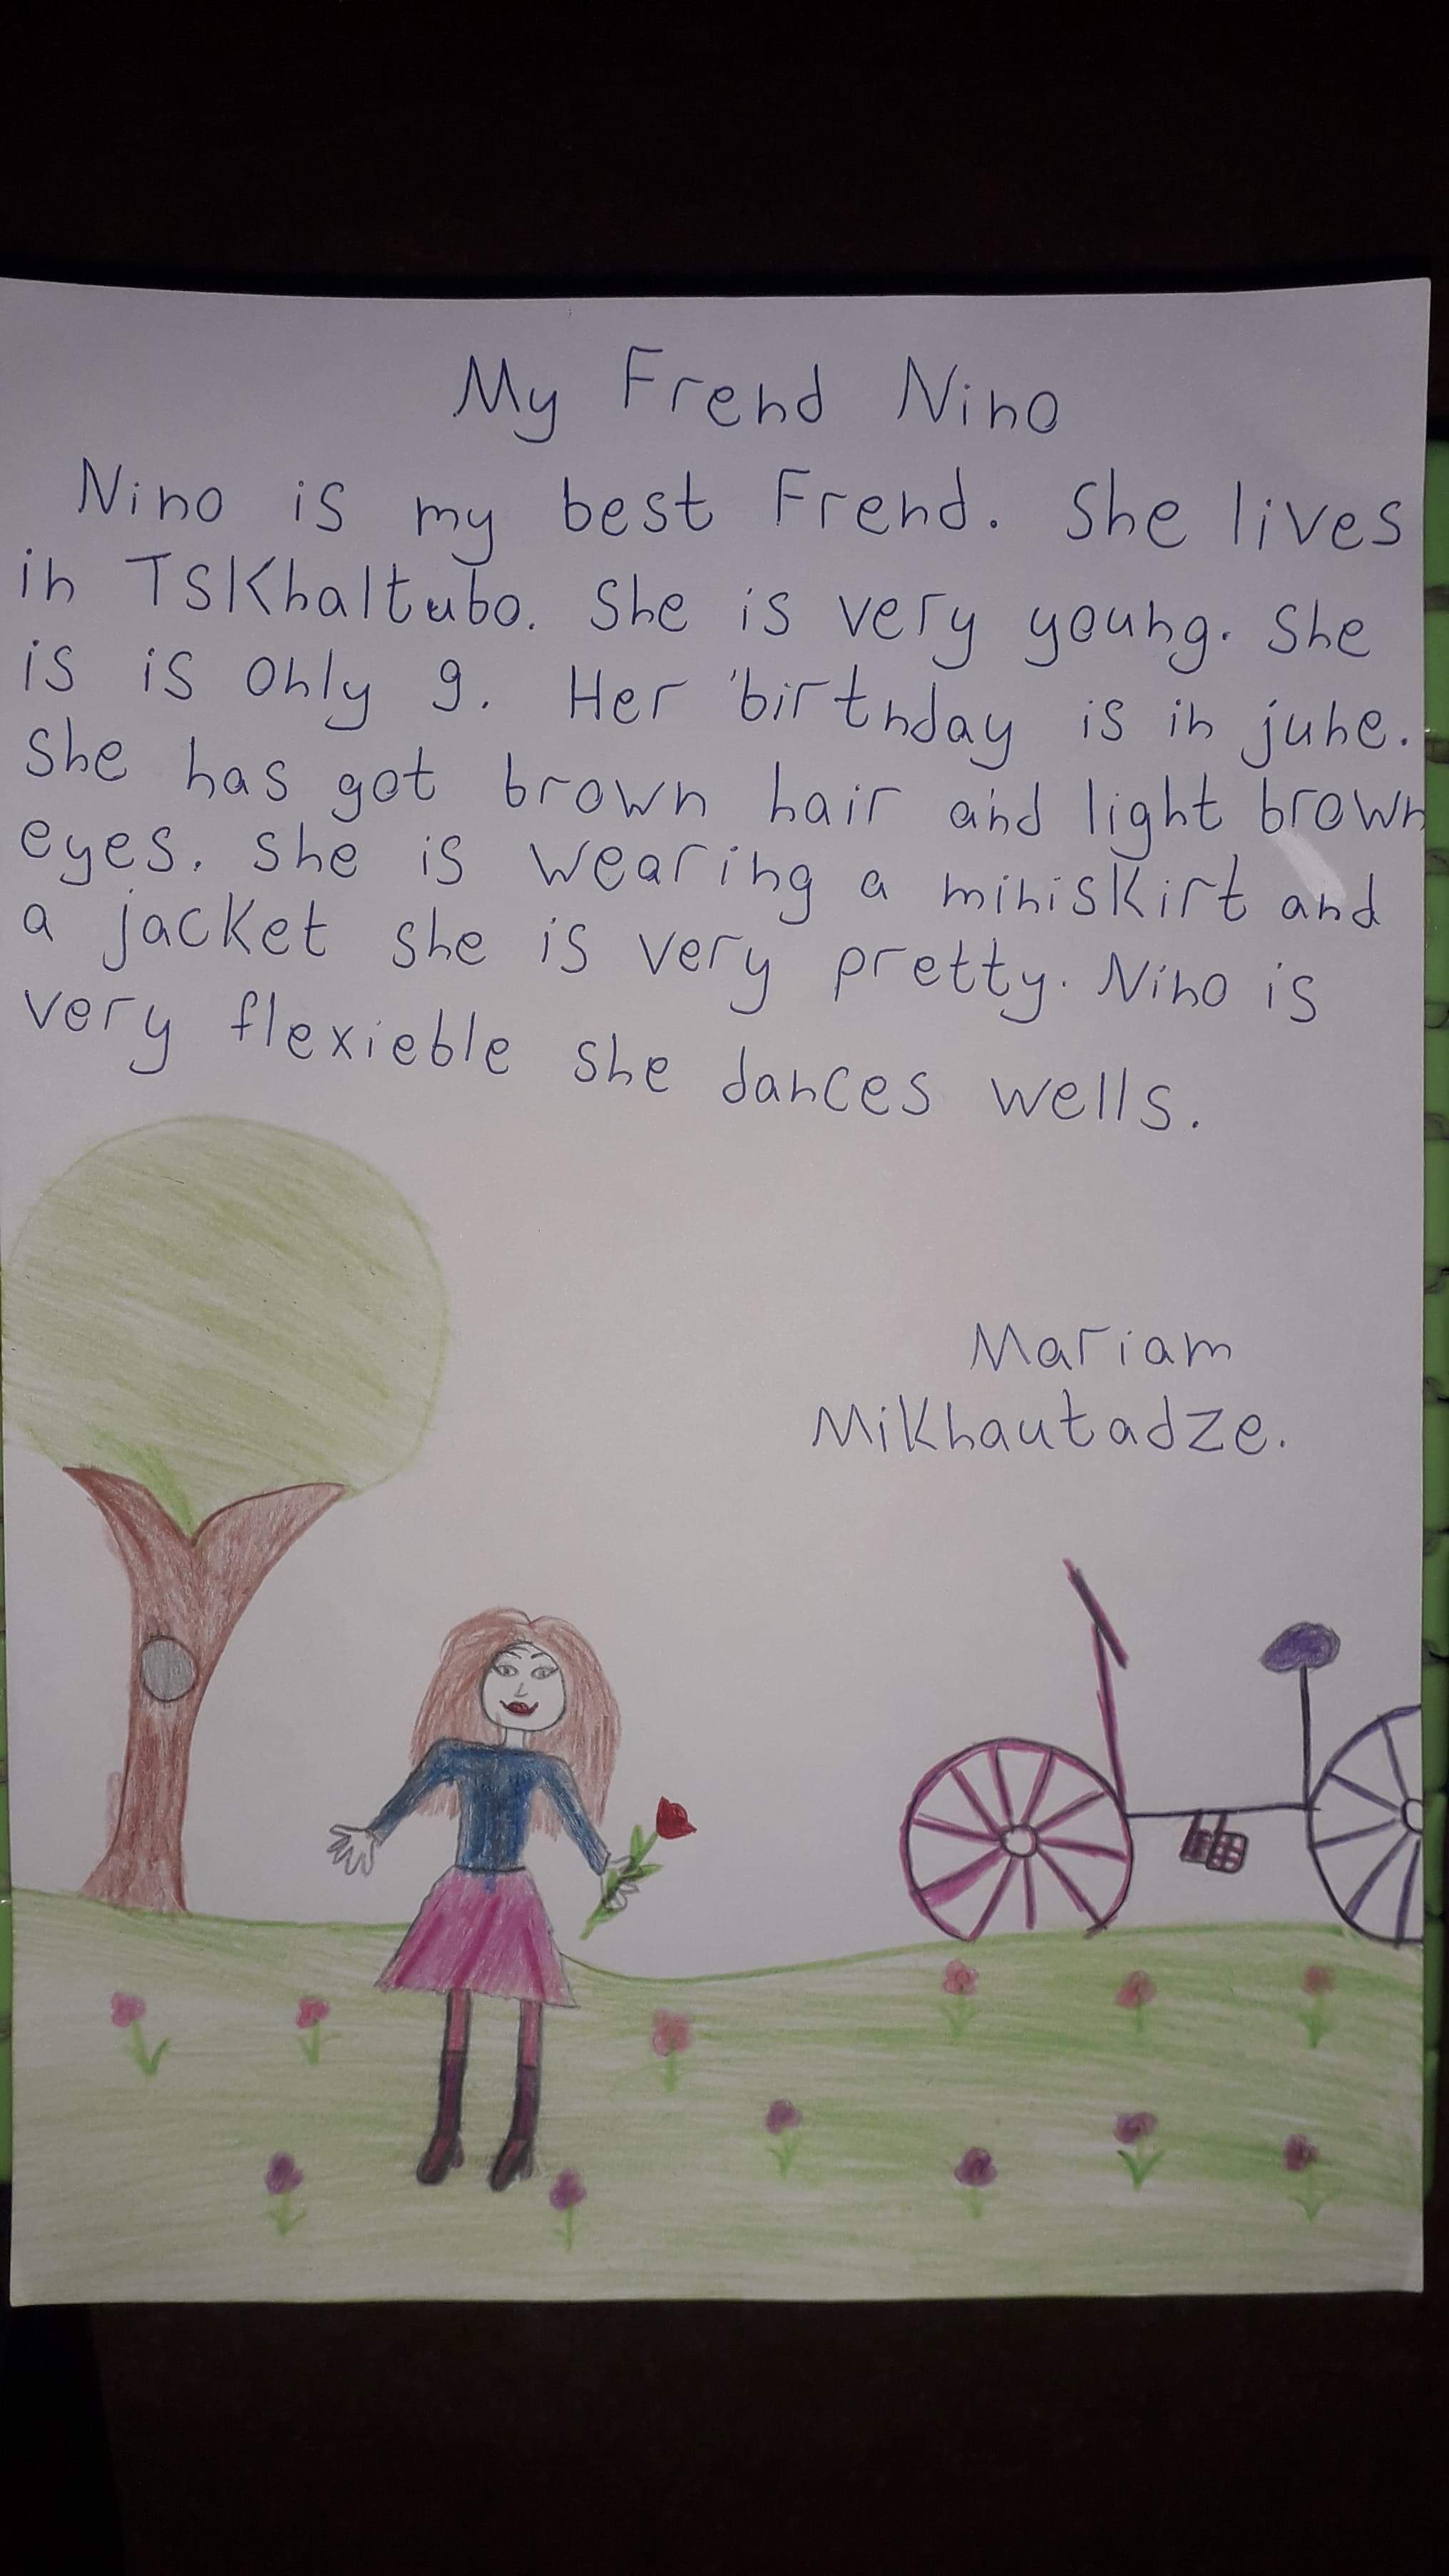 My Frend Nino
Nino is my best Frend. She lives
in TSKhaltubo. She is very young. She
is is only 9. Her birthday is in june.
She has got brown hair and light brown
eyes. she is wearing a miniskirt and
a jacket she is very pretty. Nino is
very flexieble she dances wells.
Mariam
Mikhautadze.